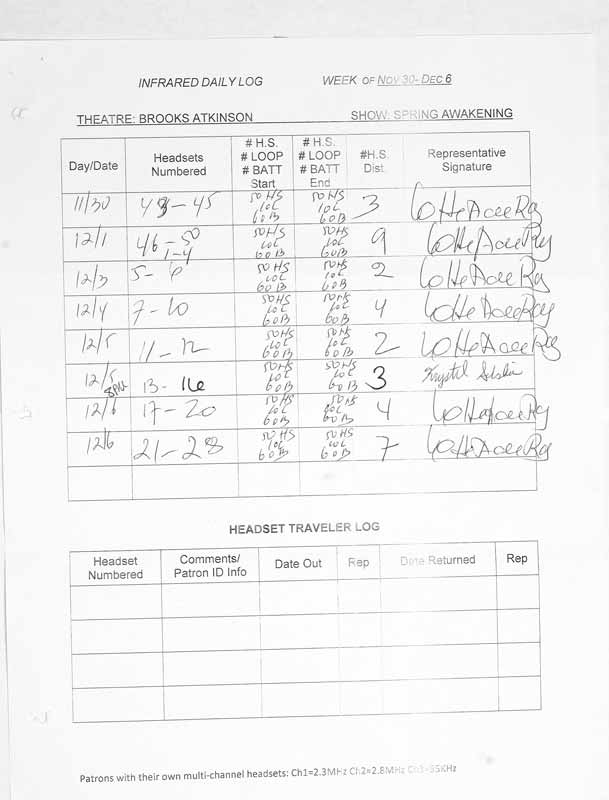 INFRARED DAILY LOG WEEK OF NOV 30- DEC 6
THEATRE: BROOKS ATKINSON SHOW: SPRING AWAKENING
Day/Date Headsets Numbered # H.S. # LOOP # BATT Start # H.S. # LOOP # BATT End #H.S. Dist. Representative Signature
11/30 43-45 50HS 10L 60B 50HS 10L 60B 3
12/1 46-50 1-4 50HS 10L 60B 50HS 10L 60B 9
12/3 5-6 50HS 10L 60B 50HS 10L 60B 2
12/4 7-10 50HS 10L 60B 50HS 10L 60B 4
12/5 11-12 50HS 10L 60B 50HS 10L 60B 2
12/5 8PM 13-16 50HS 10L 60B 50HS 10L 60B 3 Krystil
12/6 17-20 50HS 10L 60B 50HS 10L 60B 4
12/6 21-28 50HS 10L 60B 50HS 10L 60B 7
HEADSET TRAVELER LOG
Headset Numbered Comments/ Patron ID Info Date Out Rep Date Returned Rep
Patrons with their own multi-channel headsets: Ch1=2.3MHz Ch2=2.8MHz Ch3=95KHz